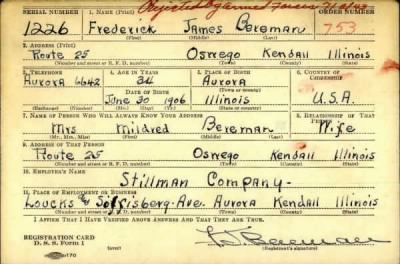 SERIAL NUMBER 1. NAME (Print) Rejected by Armed Forces ORDER NUMBER
1226 Frederick James Bereman 753
(First) (Middle) (Last)
2. ADDRESS (Print)
Route 25 Oswego Kendall Illinois
(Number and street or R. F. D. number) (Town) (County) (State)
3. TELEPHONE 4. AGE IN YEARS 5. PLACE OF BIRTH 6. COUNTRY OF CITIZENSHIP
Aurora 6642 34 Aurora
DATE OF BIRTH (Town or county)
June 30 1906 Illinois U.S.A.
(Exchange) (Number) (Mo.) (Day) (Yr.) (State or country)
7. NAME OF PERSON WHO WILL ALWAYS KNOW YOUR ADDRESS 8. RELATIONSHIP OF THAT PERSON
Mrs Mildred Bereman Wife
(Mr., Mrs., Miss) (First) (Middle) (Last)
9. ADDRESS OF THAT PERSON
Route 25 Oswego Kendall Illinois
(Number and street or R. F. D. number) (Town) (County) (State)
10. EMPLOYER'S NAME
Stillman Company-
11. PLACE OF EMPLOYMENT OR BUSINESS
Loucks Ave. Aurora Kendall Illinois
(Number and street or R. F. D. number) (Town) (County) (State)
I AFFIRM THAT I HAVE VERIFIED ABOVE ANSWERS AND THAT THEY ARE TRUE.
REGISTRATION CARD
D. S. S. Form 1 Bereman
(Registrant's signature)